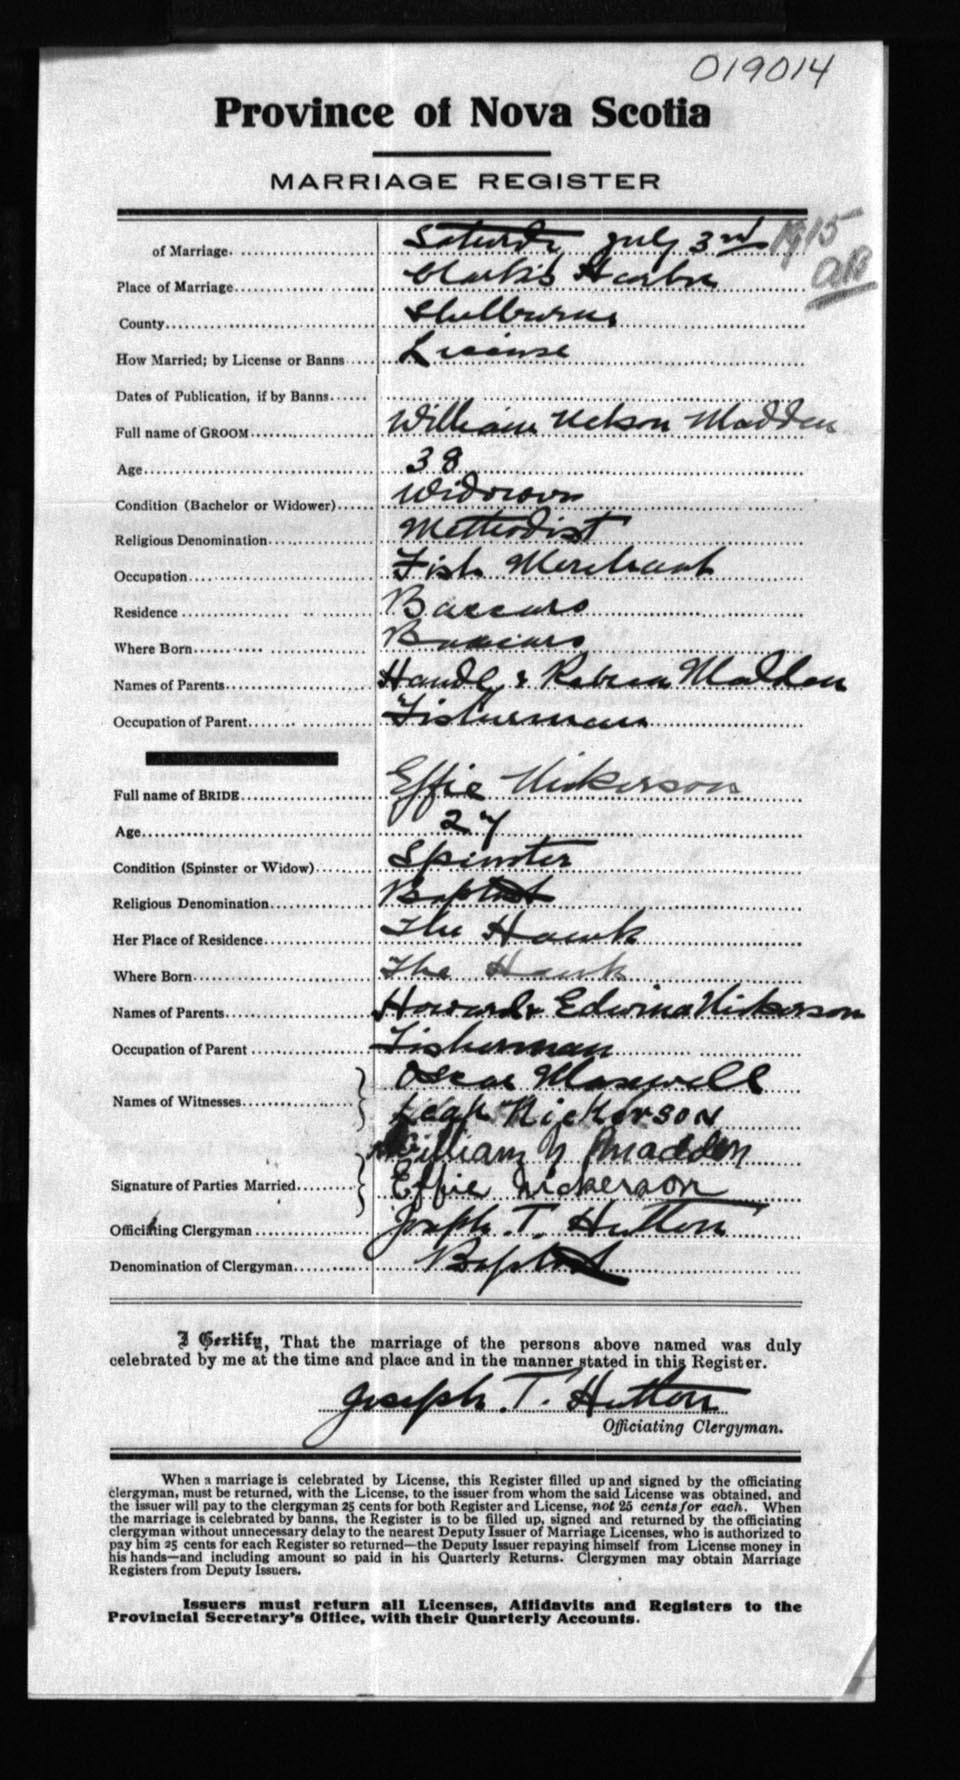 019014
Province of Nova Scotia
MARRIAGE REGISTER
of Marriage Saturda July 3rd 1915
Place of Marriage Clark's Harbor
County Shelburne
How Married; by License or Banns License
Dates of Publication, if by Banns
Full name of GROOM William Nelson Madden
Age 38
Condition (Bachelor or Widower) Widower
Religious Denomination Methodist
Occupation Fish Merchant
Residence Baccaro
Where Born Baccaro
Names of Parents & Madden
Occupation of Parent Fisherman
Full name of BRIDE Effie Nickerson
Age 27
Condition (Spinster or Widow) Spinster
Religious Denomination Baptist
Her Place of Residence The Hawk
Where Born The Hawk
Names of Parents Howard & Edwina Nickerson
Occupation of Parent Fisherman
Oscar Maxwell
Names of Witnesses
Leah Nickerson
William N Madden
Signature of Parties Married Effie Nickerson
Officiating Clergyman Joseph. T. Hutton
Denomination of Clergyman Baptist
I Certify, That the marriage of the persons above named was duly
celebrated by me at the time and place and in the manner stated in this Register.
Joseph. T. Hutton
Officiating Clergyman.
When a marriage is celebrated by License, this Register filled up and signed by the officiating
clergyman, must be returned, with the License, to the issuer from whom the said License was obtained, and
the issuer will pay to the clergyman 25 cents for both Register and License, not 25 cents for each. When
the marriage is celebrated by banns, the Register is to be filled up, signed and returned by the officiating
clergyman without unnecessary delay to the nearest Deputy Issuer of Marriage Licenses, who is authorized to
pay him 25 cents for each Register so returned—the Deputy Issuer repaying himself from License money in
his hands—and including amount so paid in his Quarterly Returns. Clergymen may obtain Marriage
Registers from Deputy Issuers.
Issuers must return all Licenses, Affidavits and Registers to the
Provincial Secretary's Office, with their Quarterly Accounts.